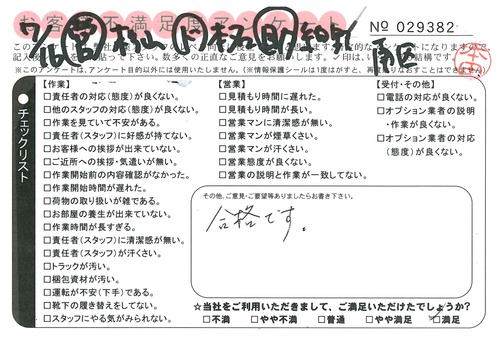 お客様不満足度アンケート
No 029382
チェックリスト
【作業】
□責任者の対応(態度)が良くない。
□他のスタッフの対応(態度)が良くない。
□作業を見ていて不安がある。
□責任者(スタッフ)に好感が持てない。
□お客様への挨拶が出来ていない。
□ご近所への挨拶・気遣いが無い。
□作業開始前の内容確認がなかった。
□作業開始時間が遅れた。
□荷物の取り扱いが雑である。
□お部屋の養生が出来ていない。
□作業時間が長すぎる。
□責任者(スタッフ)に清潔感が無い。
□責任者(スタッフ)が汗くさい。
□トラックが汚い。
□梱包資材が汚い。
□運転が不安(下手)である。
□靴下の履き替えをしてない。
□スタッフにやる気がみられない。
【営業】
□見積もり時間に遅れた。
□見積もり時間が長い。
□営業マンに清潔感が無い。
□営業マンが煙草くさい。
□営業マンが汗くさい。
□営業態度が良くない。
□営業の説明と作業が一致してない。
【受付・その他】
□電話の対応が良くない。
□オプション業者の説明
・作業が良くない。
□オプション業者の対応
(態度)が良くない。
その他、ご意見・ご要望等ありましたらお書き下さい。
合格です。
☆当社をご利用いただきまして、ご満足いただけたでしょうか?
□不満 □やや不満 □普通 □やや満足 □満足